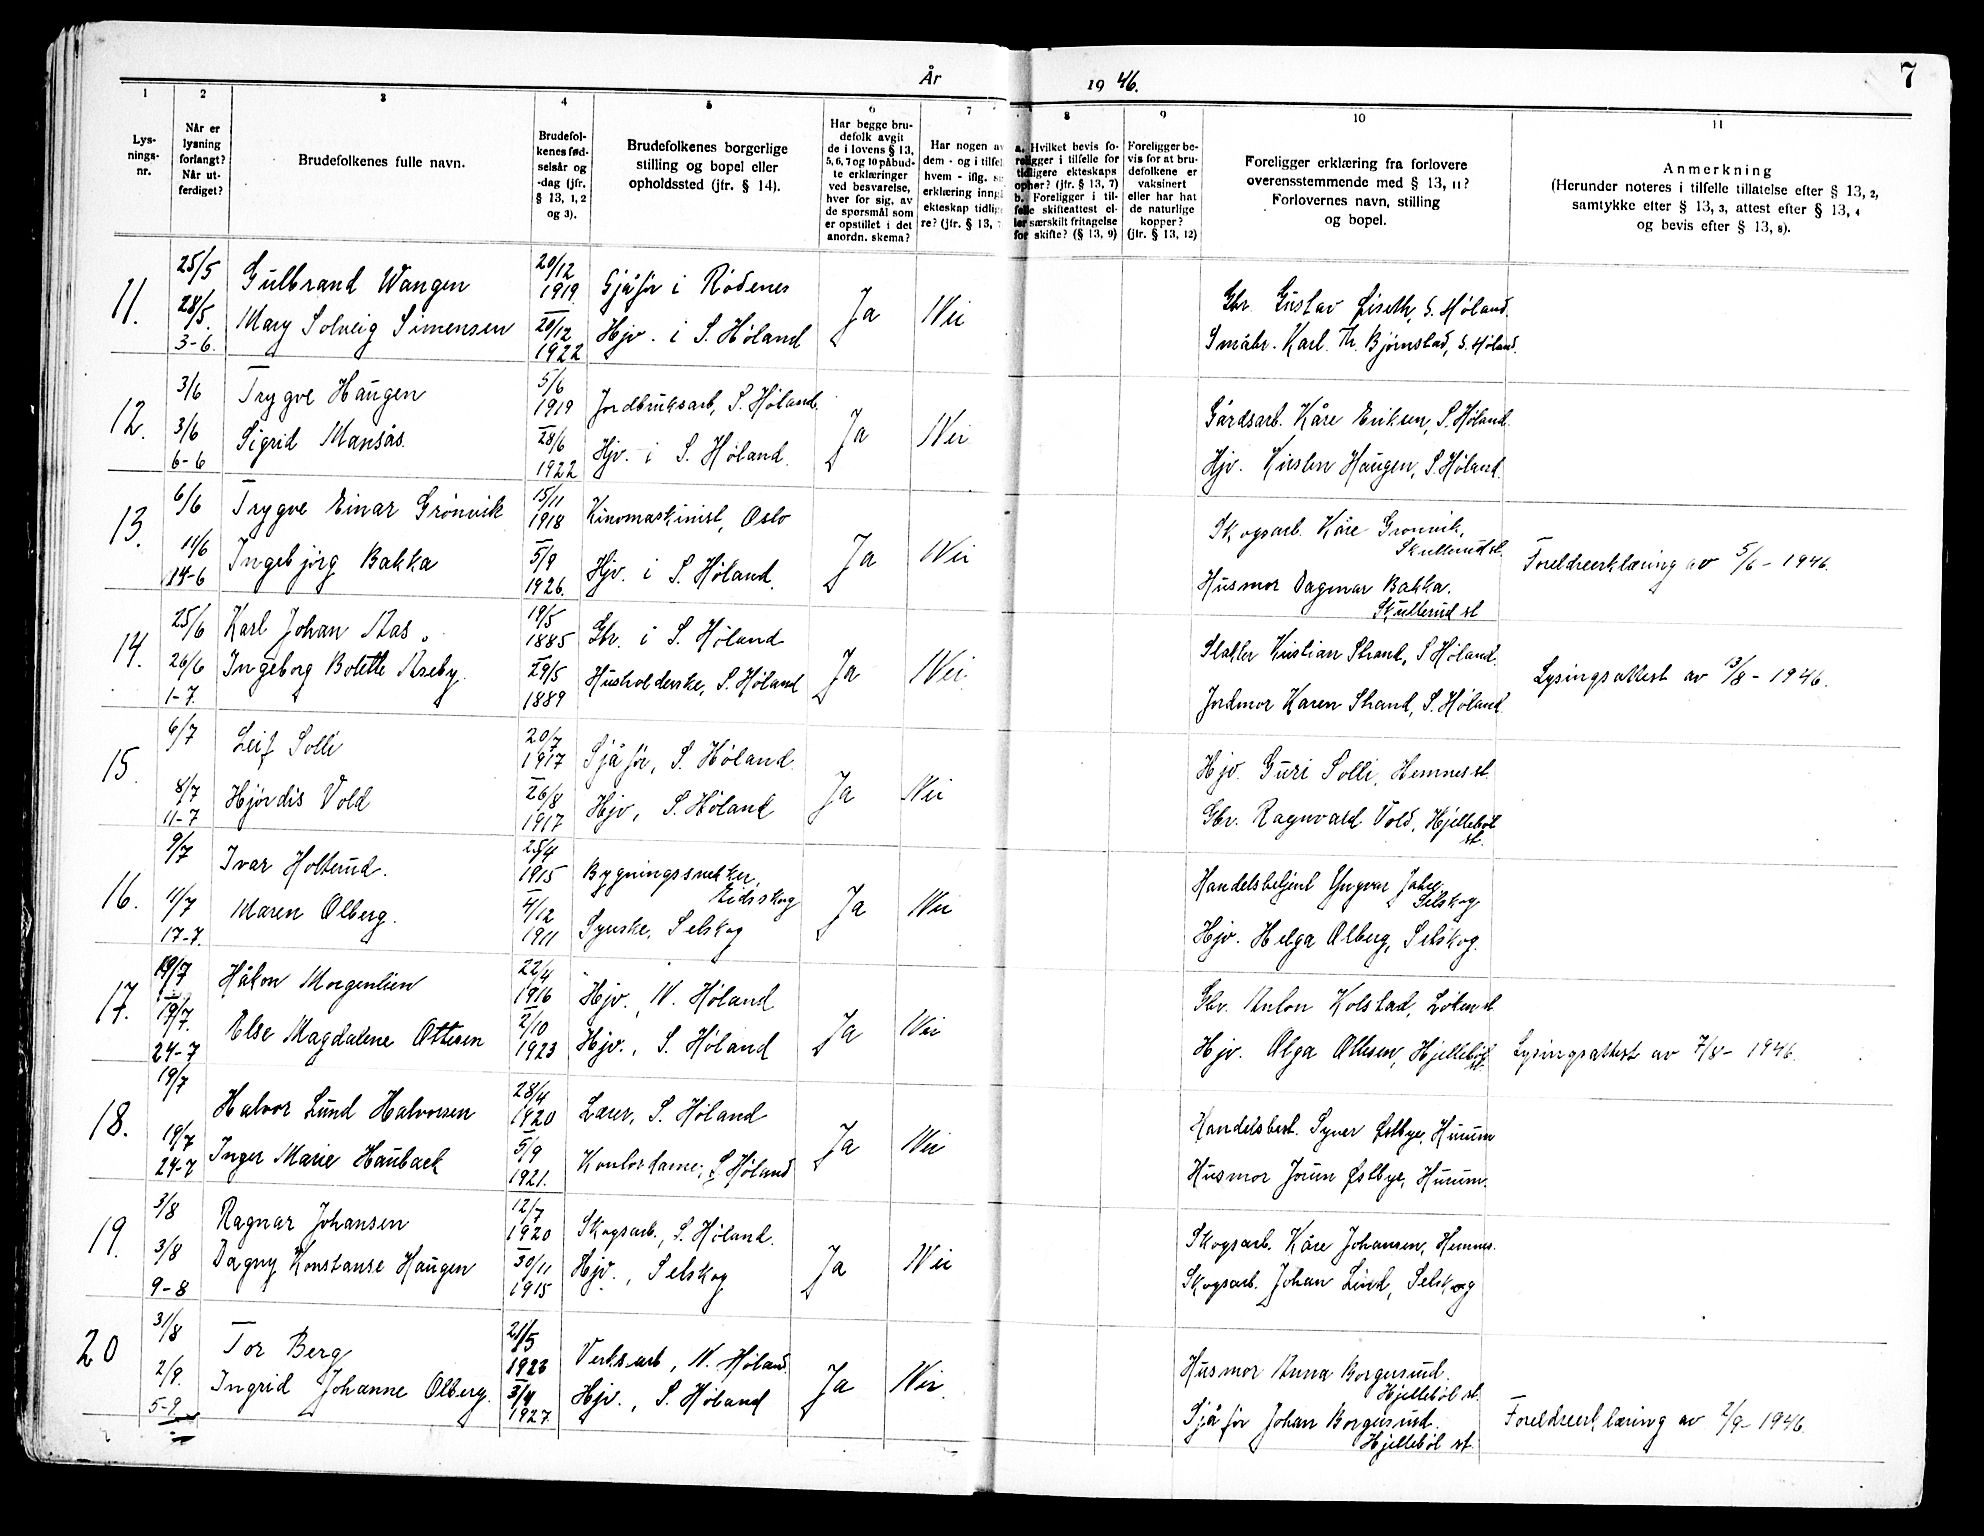 År 1946.
7
1
2
3
4
5
6
7
8
9
10
11
Lys-
nings-
nr.
Når er
lysning
forlangt?
Når ut-
ferdiget?
Brudefolkenes fulle navn.
Brudefol-
kenes fød-
selsår og
-dag (jfr.
§ 13, 1, 2
og 3).
Brudefolkenes borgerlige
stilling og bopel eller
opholdssted (jfr. § 14).
Har begge bru-
defolk avgit
de i lovens § 13,
5, 6, 7 og 10 påbud-
te erklæringer
ved besvarelse,
hver for sig, av
de spørsmål som
er opstillet i det
anordn. skema?
Har nogen av
dem - og i tilfel
hvem - iflg.
erklæring inng
ekteskap tidlig
re? (jfr. § 13,
a. Hvilket bevis fo-
religger i tilfelle for
tidligere ekteskaps
ophør? (jfr. § 13, 7)
b. Foreligger i til-
felle skifteattest el-
ler særskilt fritagelse
for skifte? (§ 13, 9)
Foreligger be-
vis for at bru-
defolkene er
vaksinert
eller har hat
de naturlige
kopper?
(jfr. § 13, 12)
Foreligger erklæring fra forlovere
overensstemmende med § 13, 11?
Forlovernes navn, stilling
og bopel.
Anmerkning
(Herunder noteres i tilfelle tillatelse efter § 13, 2,
samtykke efter § 13, 3, attest efter § 13, 4
og bevis efter § 13, 8).
11.
25/5
28/5.
3-6.
Gulbrand Wangen
Mary Solveig Simensen
20/12
1919
20/12
1922
Sjåfør i Rødenes
Hjv. i S. Høland
Ja
Nei
Gbr. Gustav Eiseth, S. Høland.
Småbr. Karl. Th. Bjørnstad, S. Høland.
12.
3/6
3/6
6-6
Trygve Haugen
Sigrid Mansås.
5/6
1919
28/6
1922
Jordbruksarb, S. Høland.
Hjv. i S. Høland.
Ja
Nei
Gårdsarb. Kåre Eriksen, S. Høland.
Hjv. Kirsten Haugen, S. Høland.
13.
6/6
11/6
14-6
Trygve Einar Grønvik
Ingebjørg Bakka
15/11
1918
5/9
1926.
Kinomaskinist, Oslo
Hjv. i S. Høland.
Ja
Nei
Skogsarb. Kåre Grønvik,
Skullerud st.
Husmor Dagmar Bakka.
Skullerud st
Foreldreerklæring av 5/6 - 1946.
14.
25/6
26/6
1-7.
Karl Johan Aas.
Ingeborg Bolette Aseby.
19/5
1885
29/5
1889
Gbr. i S. Høland
Husholderske, S. Høland
Ja
Nei.
Slakter Kristian Strand, S Høland.
Jordmor Karen Strand, S. Høland.
Lysingsattest av 13/8 - 1946.
15.
6/7
8/7
11-7
Leif Solli
Hjørdis Vold
20/7
1917
26/8
1917
Sjåfør, S. Høland.
Hjv, S. Høland
Ja
Nei
Hjv. Guri Solli, Hemnes st.
Gbr. Ragnvald Vold, Hjellebøl
st.
16.
9/7
11/7
17-7.
Ivar Holterud.
Maren Olberg.
25/4
1915
4/12
1911
Bygningssnekker,
Eidsskog
Syerske, Setskog
Ja
Nei
Handelsbetjent Yngvar
Setskog
Hjv. Helga Olberg, Setskog.
17.
19/7
19/7.
24-7
Håkon Morgenlien
Else Magdalene Ottesen
22/4
1916
2/10
1923
Hjv., N. Høland
Hjv., S. Høland
Ja
Nei
Gbr. Anton Kolstad, Løken st
Hjv. Olga Ottesen, Hjellebøl
st.
Lysingsattest av 7/8 - 1946.
18.
19/7
19/7
24-7
Halvor Lund Halvorsen
Inger Marie Haubach
28/4
1920
5/9
1921.
Lærer, S. Høland
Kontordame, S Høland
Ja
Nei
Handelsbest. Syver Østbye, Hurum
Husmor Jorun Østbye, Hurum.
19.
3/8
3/8
9-8
Ragnar Johansen
Dagny Konstanse Haugen
12/7
1920
30/11
1915
Skogsarb., S. Høland.
Hjv., Setskog
Ja
Nei
Skogsarb. Kåre Johansen, Hemnes.
Skogsarb. Johan Lund, Setskog
20
31/8
2/9.
5-9
Tor Berg
Ingrid Johanne Olberg.
21/5
1923
3/4
1927.
Verksarb, N. Høland.
Hjv., S. Høland
Ja
Nei.
Husmor Anna Borgersrud.
Hjellebøl st.
Sjåfør Johan Borgersrud.
Hjellebøl st.
Foreldreerklæring av 2/9 - 1946.